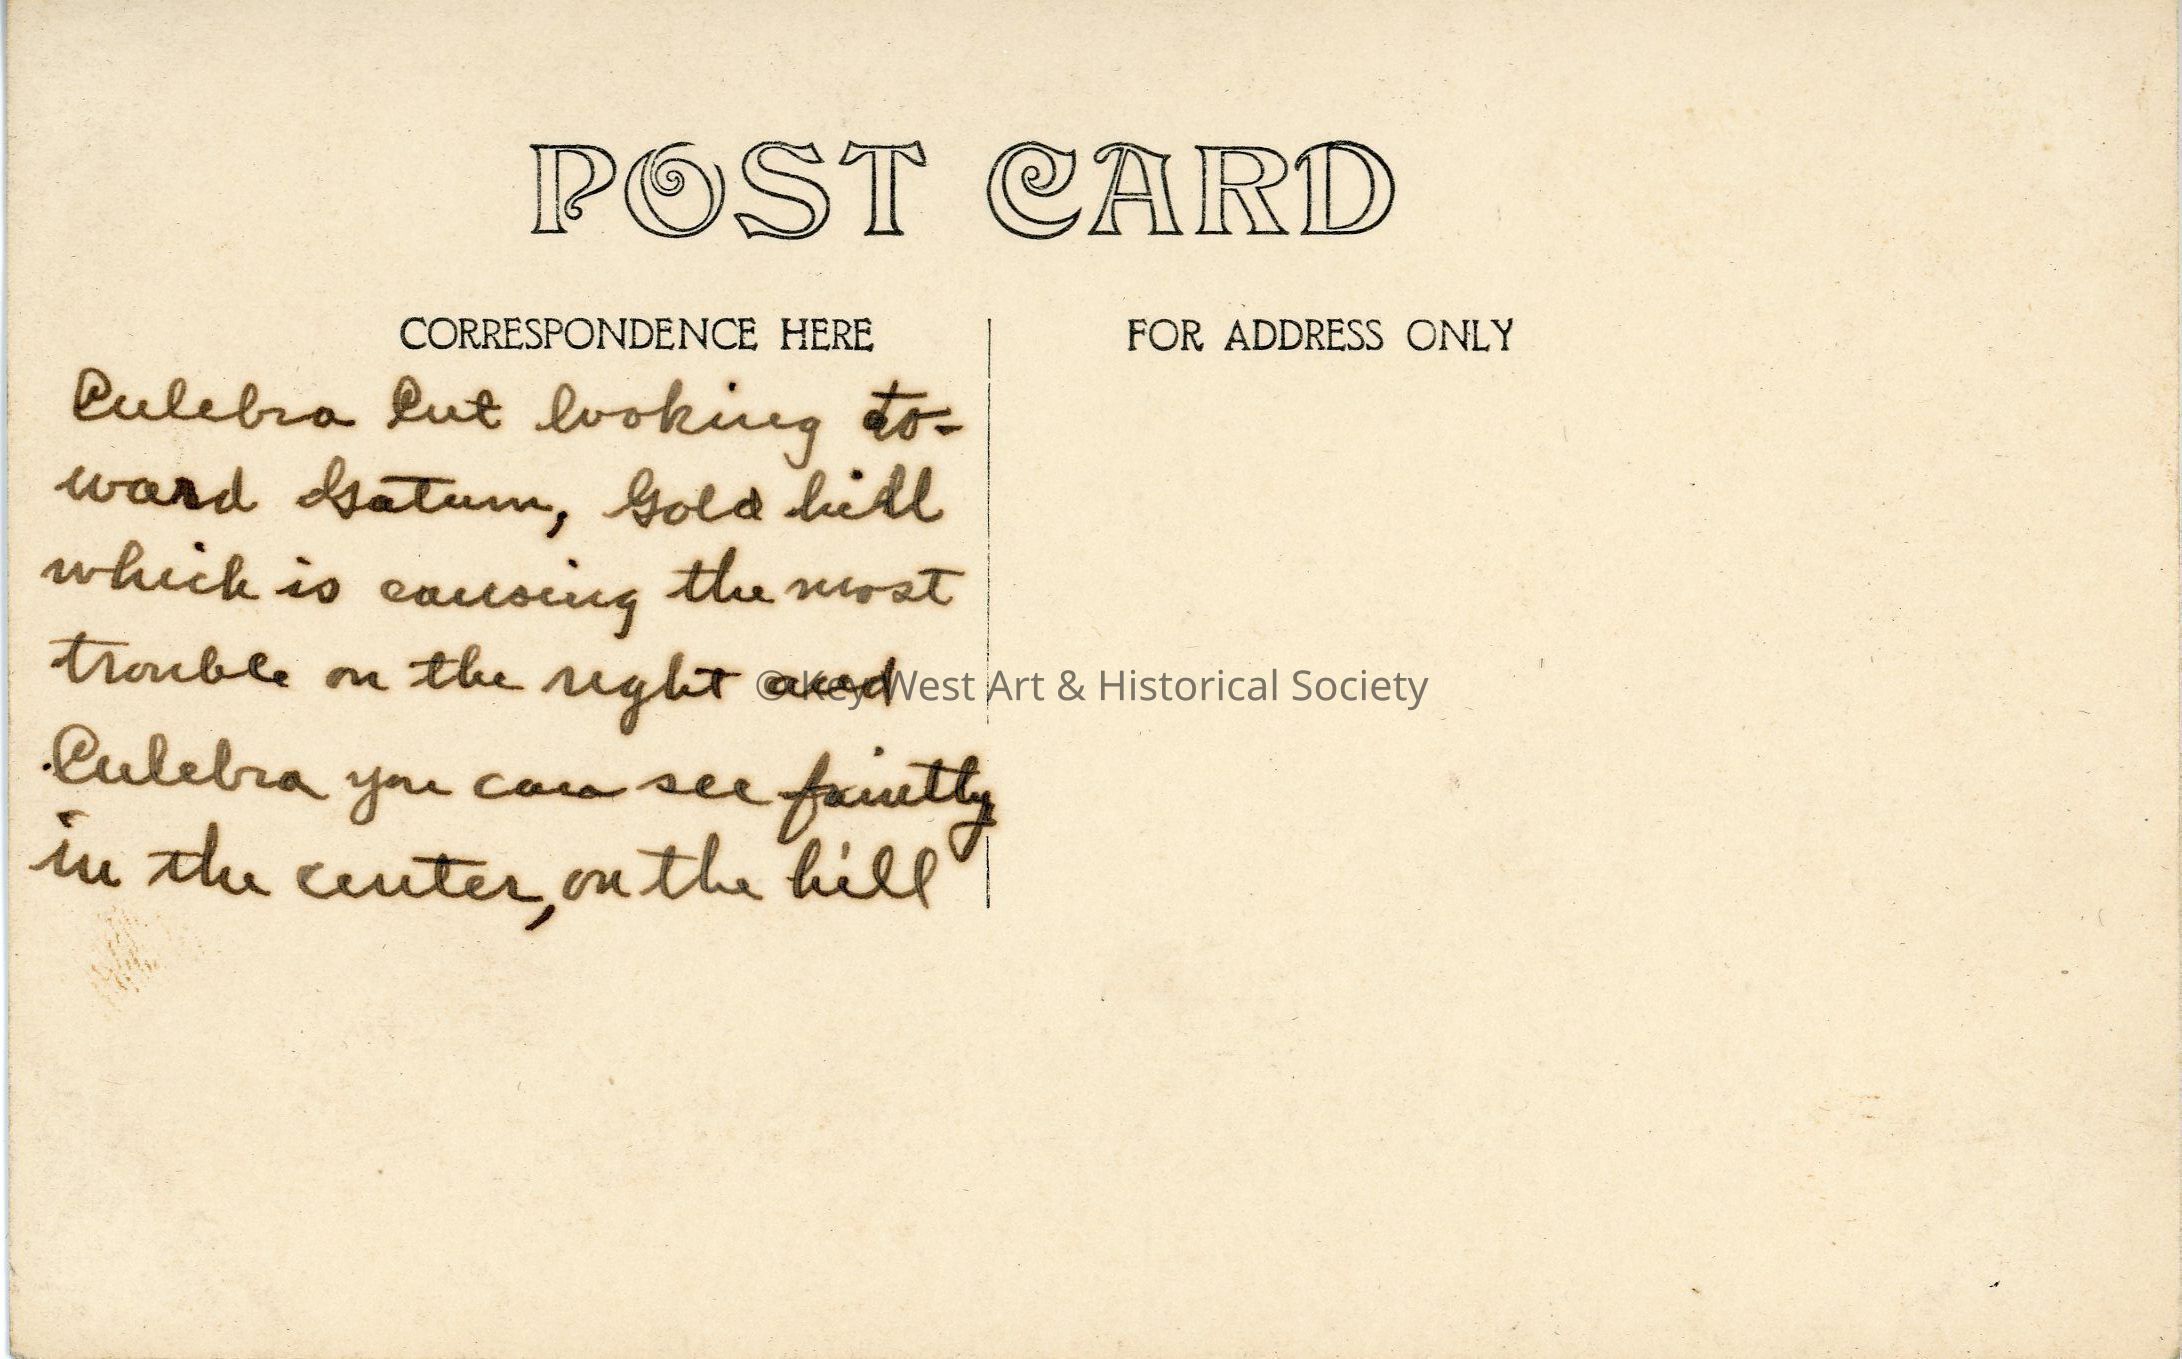 POST CARD
CORRESPONDENCE HERE
FOR ADDRESS ONLY
Culebra Cut looking to-
ward Gatum, Gold hill
which is causing the most
trouble on the right and
Culebra you can see faintly
in the center, on the hill
© Key West Art & Historical Society